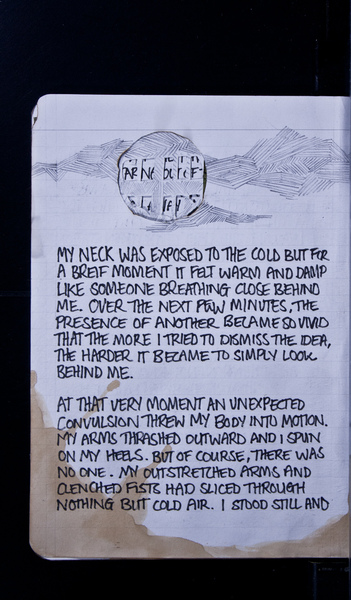 MY NECK WAS EXPOSED TO THE COLD BUT FOR
A BREIF MOMENT IT FELT WARM AND DAMP
LIKE SOMEONE BREATHING CLOSE BEHIND
ME. OVER THE NEXT FEW MINUTES, THE
PRESENCE OF ANOTHER BECAME SO VIVID
THAT THE MORE I TRIED TO DISMISS THE IDEA,
THE HARDER IT BECAME TO SIMPLY LOOK
BEHIND ME.
AT THAT VERY MOMENT AN UNEXPECTED
CONVULSION THREW MY BODY INTO MOTION.
MY ARMS THRASHED OUTWARD AND I SPUN
ON MY HEELS. BUT OF COURSE, THERE WAS
NO ONE. MY OUTSTRETCHED ARMS AND
CLENCHED FISTS HAD SLICED THROUGH
NOTHING BUT COLD AIR. I STOOD STILL AND